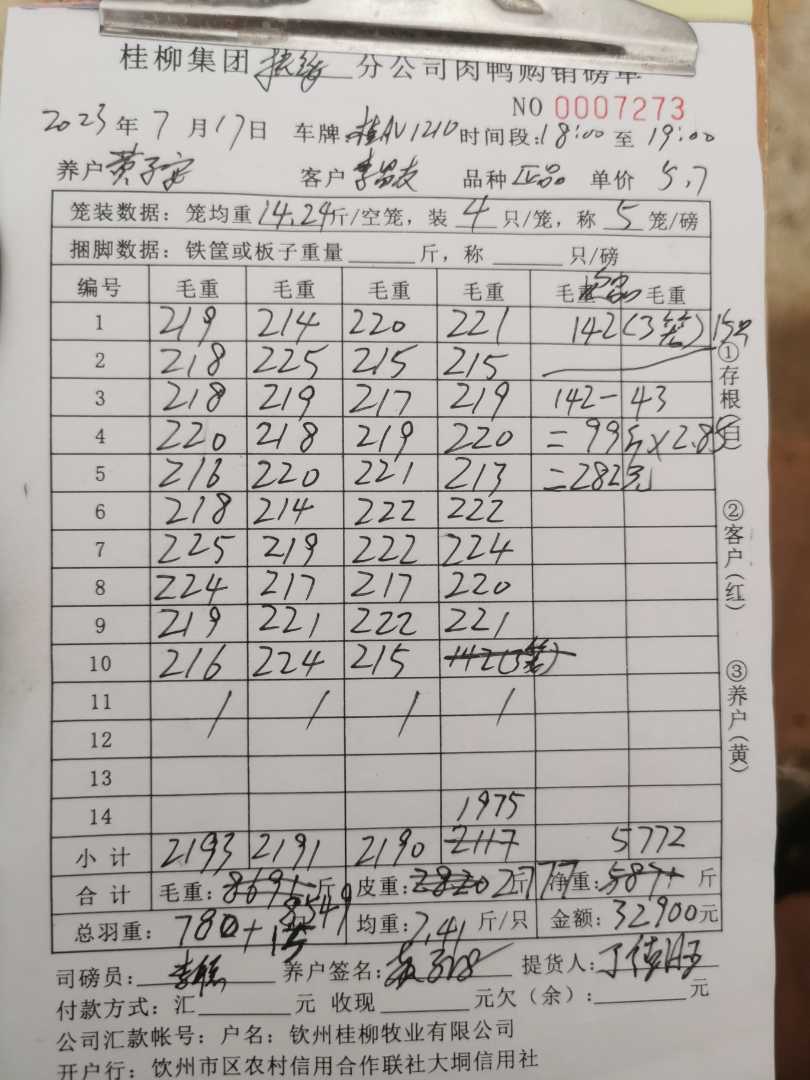 桂柳集团扶绥分公司肉鸭购销磅单
NO 0007273
2023年7月17日 车牌:桂AV1210 时间段:18:00至19:00
养户黄子安 客户 品种正品 单价5.7
笼装数据:笼均重14.24斤/空笼,装4只/笼,称5笼/磅
捆脚数据:铁筐或板子重量______斤,称______只/磅
编号 毛重 毛重 毛重 毛重 毛重 毛重
1 219 214 220 221 142(3笼)15只
2 218 225 215 215
3 218 219 217 219 142-43
4 220 218 219 220 =99斤×2.85
5 216 220 221 213 =282元
6 218 214 222 222
7 225 219 222 224
8 224 217 217 220
9 219 221 222 221
10 216 224 215 142(3笼)
11 / / / /
12
13
14 1975
小计 2193 2191 2190 2117 5772
合计 毛重:8691斤 8549 皮重:2820斤 2777 净重:5871斤
总羽重:780+15 均重:7.41斤/只 金额:32900元
司磅员: 养户签名: 提货人:
付款方式:汇______元 收现______元欠(余):______元
公司汇款帐号:户名:钦州桂柳牧业有限公司
开户行:钦州市区农村信用合作联社大垌信用社
①存根(白)
②客户(红)
③养户(黄)